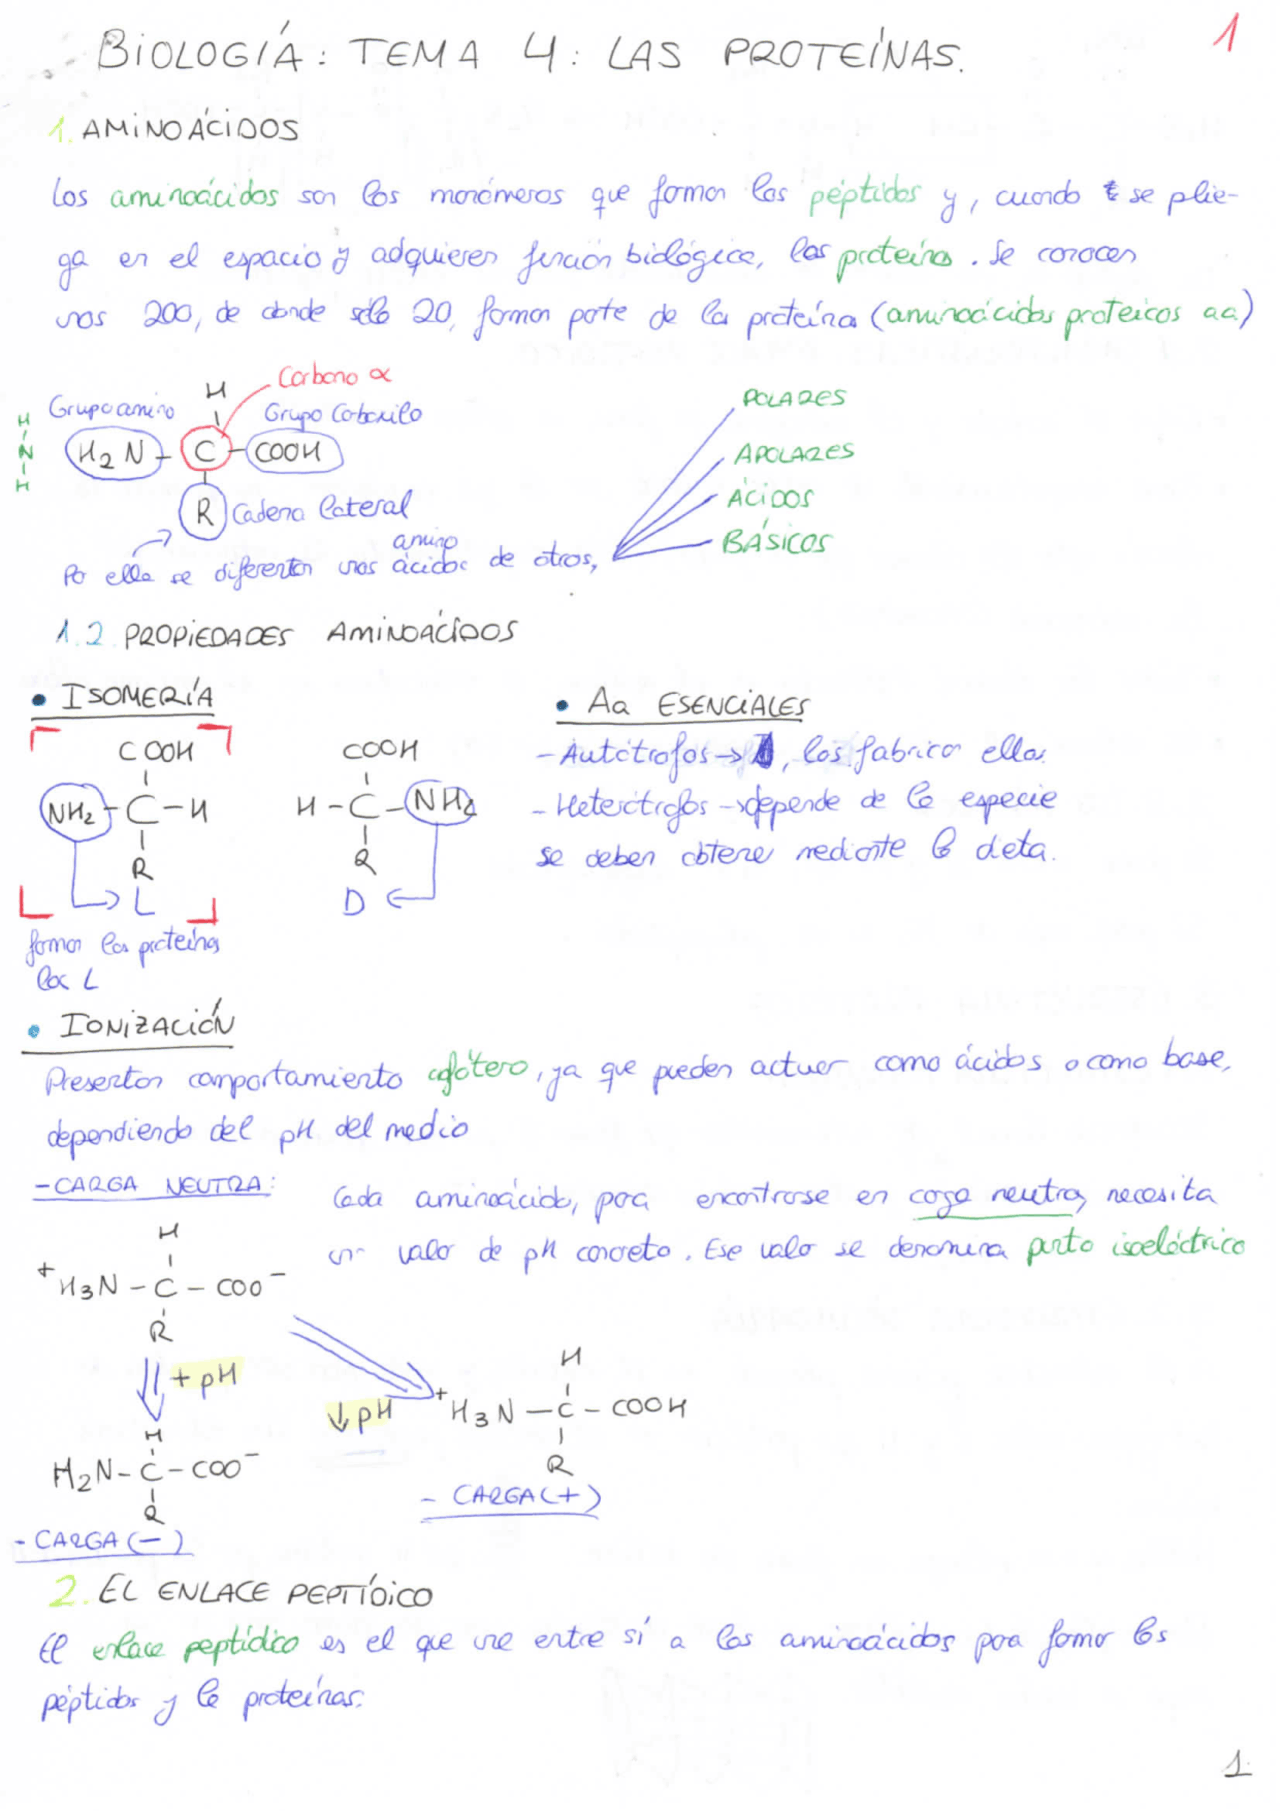 BIOLOGÍA: TEMA 4: LAS PROTEÍNAS.
1
1. AMINOÁCIDOS
Los aminoácidos son los monómeros que forman los péptidos y, cuando se plie-
ga en el espacio y adquieren función biológica, las proteínas. Se conocen
unos 200, de donde sólo 20, forman parte de la proteína (aminoácidos proteicos aa)
Carbono α
Grupo amino
Grupo Carboxilo
H
H-N-H
H₂N - C - COOH
R Cadena lateral
POLARES
APOLARES
ÁCIDOS
BÁSICOS
amino
Por ella se diferentan unos ácidos de otros,
1.2. PROPIEDADES AMINOÁCIDOS
• ISOMERÍA
COOH
NH₂ - C - H
R
L
forman las proteínas
los L
COOH
H - C - NH₂
R
D
• Aa ESENCIALES
- Autótrofos → , los fabrican ellos.
- Heterótrofos → depende de la especie
se deben obtener mediante la dieta.
• IONIZACIÓN
Presentan comportamiento anfótero, ya que pueden actuar como ácidos o como base,
dependiendo del pH del medio
- CARGA NEUTRA:
Cada aminoácido, para encontrarse en carga neutra, necesita
un valor de pH concreto. Ese valor se denomina punto isoeléctrico
H
⁺H₃N - C - COO⁻
R
+ pH
↓ pH
H
⁺H₃N - C - COOH
R
- CARGA (+)
H
H₂N - C - COO⁻
R
- CARGA (-)
2. EL ENLACE PEPTÍDICO
El enlace peptídico es el que une entre sí a los aminoácidos para formar los
péptidos y la proteínas.
1.